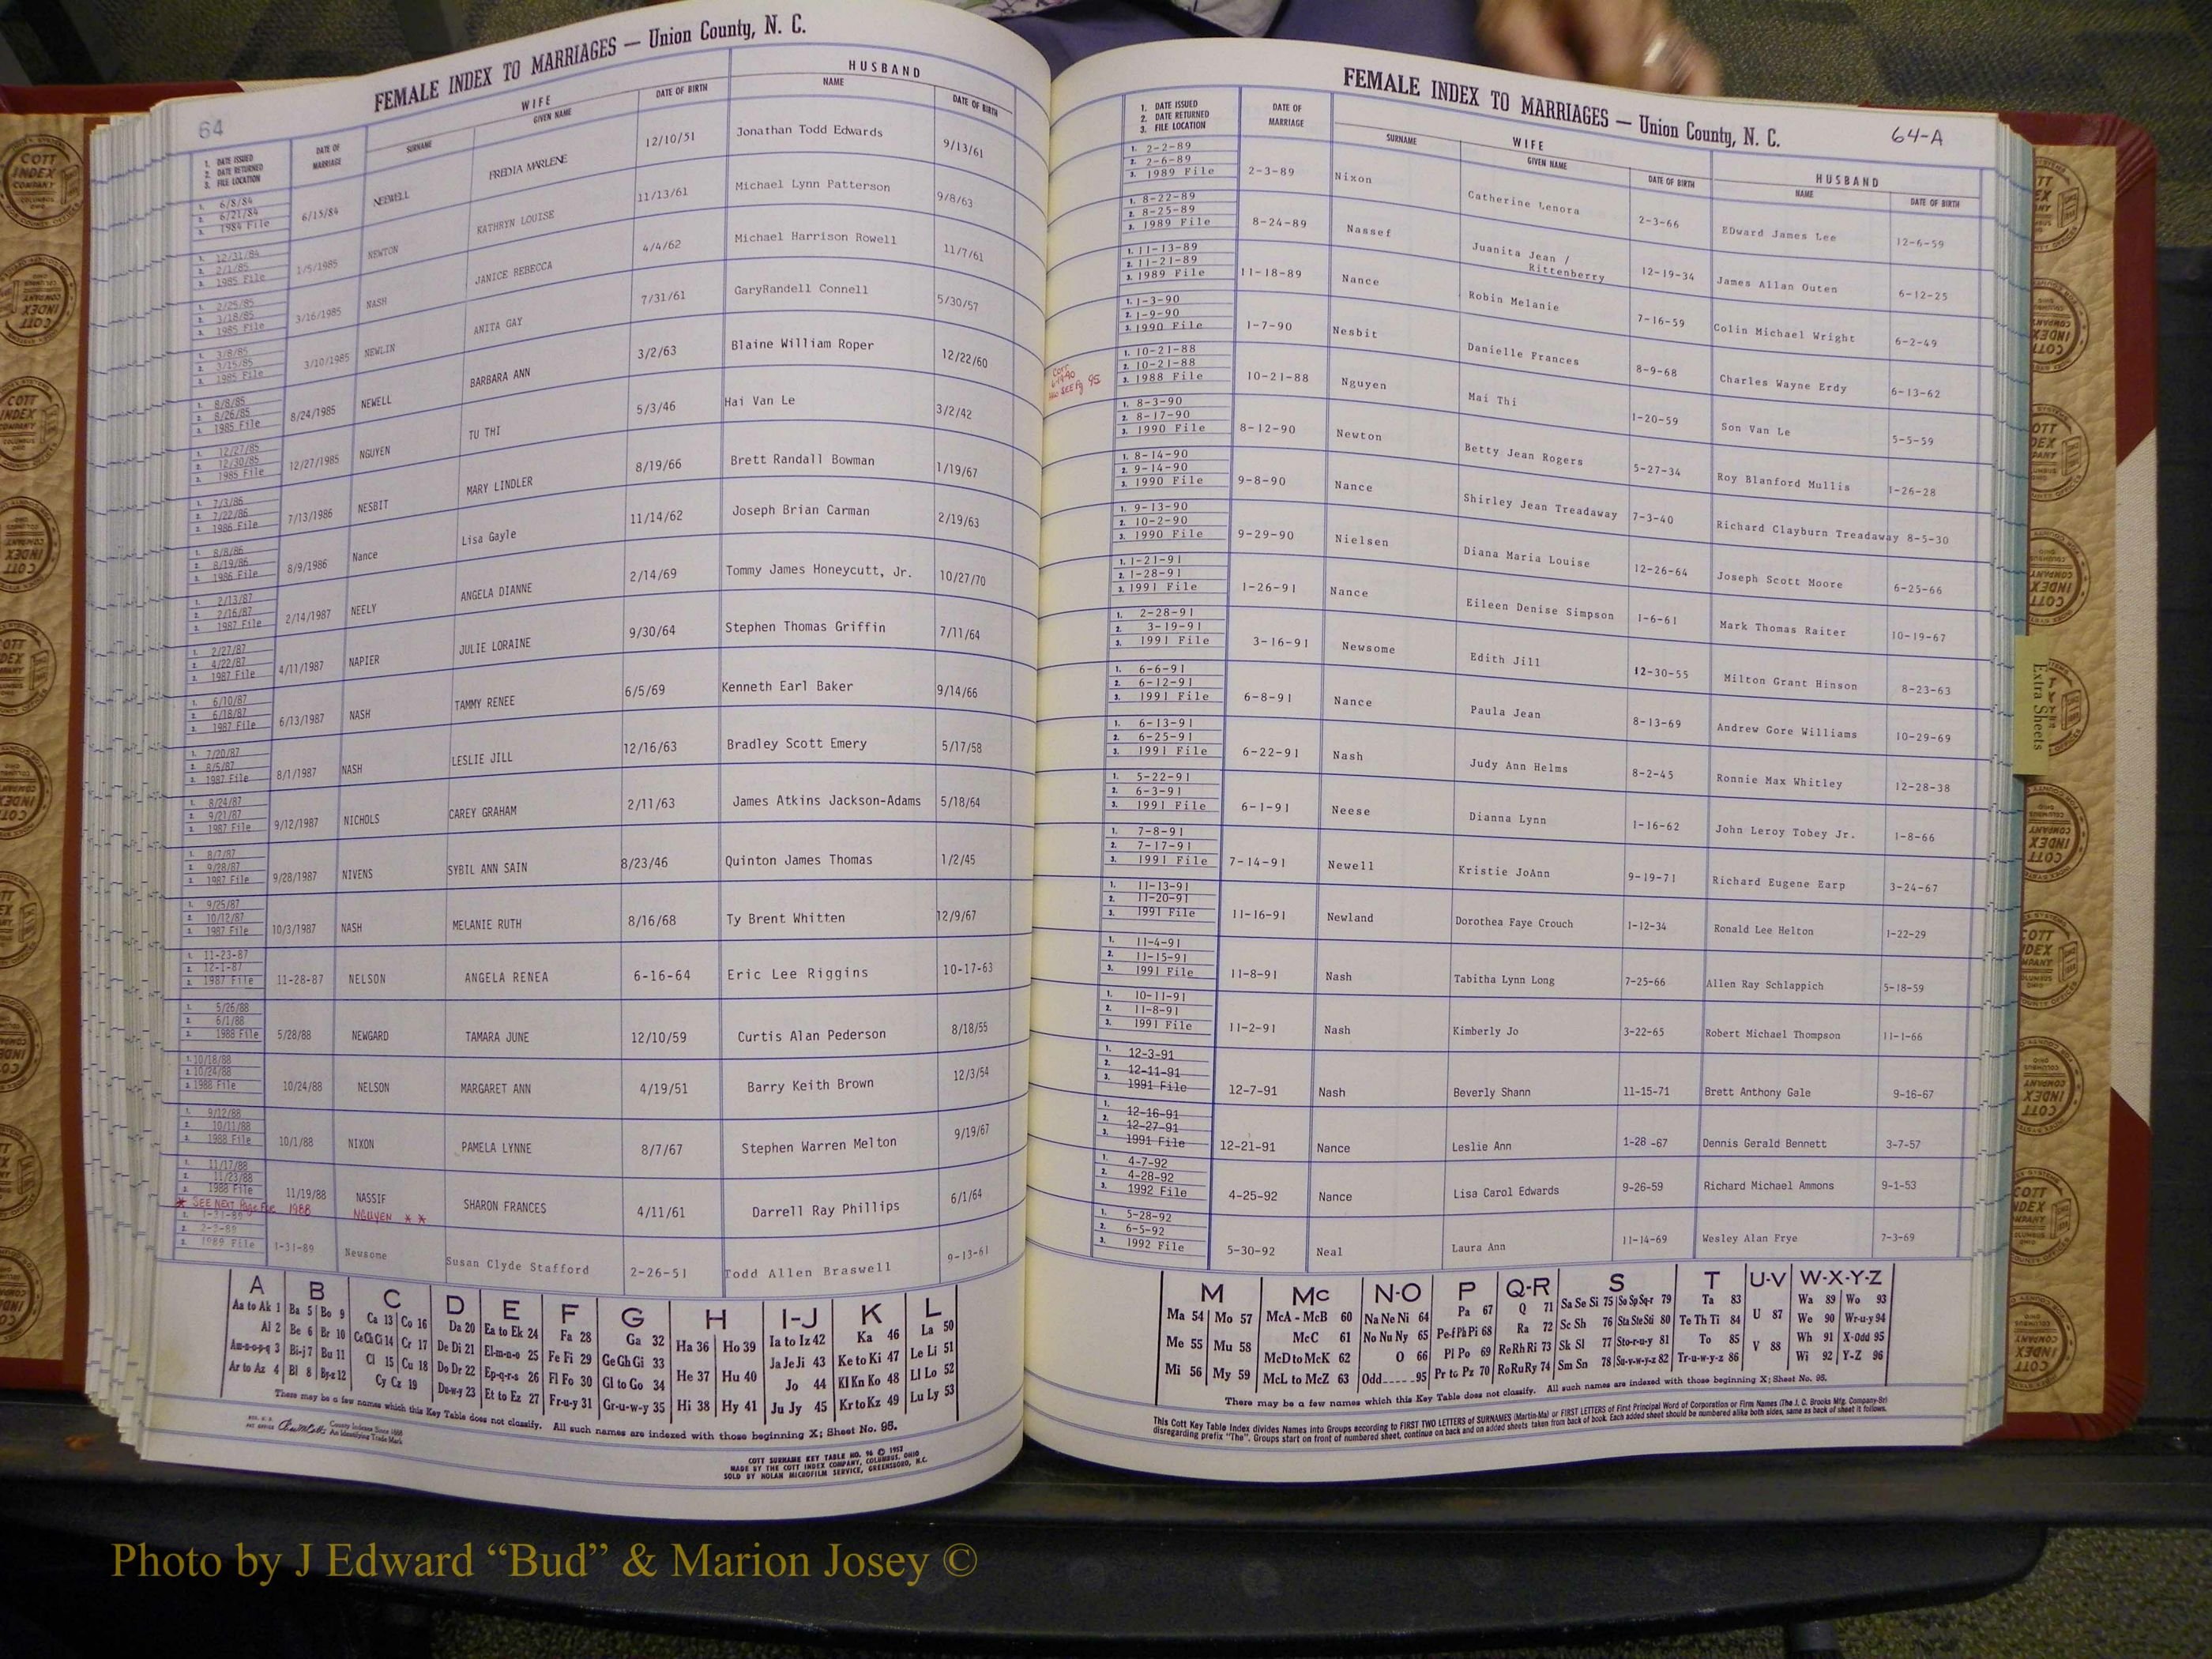 FEMALE INDEX TO MARRIAGES — Union County, N. C.
64
1. DATE ISSUED
2. DATE RETURNED
3. FILE LOCATION
DATE OF MARRIAGE
WIFE
SURNAME GIVEN NAME DATE OF BIRTH
HUSBAND
NAME DATE OF BIRTH
1. 6/8/84
2. 6/21/84
3. 1984 File
6/15/84 NEEWELL FREDIA MARLENE 12/10/51 Jonathan Todd Edwards 9/13/61
1. 12/31/84
2. 2/1/85
3. 1985 File
1/5/1985 NEWTON KATHRYN LOUISE 11/13/61 Michael Lynn Patterson 9/8/63
1. 2/25/85
2. 3/18/85
3. 1985 File
3/16/1985 NASH JANICE REBECCA 4/4/62 Michael Harrison Rowell 11/7/61
1. 3/8/85
2. 3/15/85
3. 1985 File
3/10/1985 NEWLIN ANITA GAY 7/31/61 GaryRandell Connell 5/30/57
1. 8/8/85
2. 8/26/85
3. 1985 File
8/24/1985 NEWELL BARBARA ANN 3/2/63 Blaine William Roper 12/22/60
1. 12/27/85
2. 12/30/85
3. 1985 File
12/27/1985 NGUYEN TU THI 5/3/46 Hai Van Le 3/2/42
1. 7/3/86
2. 7/22/86
3. 1986 File
7/13/1986 NESBIT MARY LINDLER 8/19/66 Brett Randall Bowman 1/19/67
1. 8/8/86
2. 8/19/86
3. 1986 File
8/9/1986 Nance Lisa Gayle 11/14/62 Joseph Brian Carman 2/19/63
1. 2/13/87
2. 2/16/87
3. 1987 File
2/14/1987 NEELY ANGELA DIANNE 2/14/69 Tommy James Honeycutt, Jr. 10/27/70
1. 2/27/87
2. 4/22/87
3. 1987 File
4/11/1987 NAPIER JULIE LORAINE 9/30/64 Stephen Thomas Griffin 7/11/64
1. 6/10/87
2. 6/18/87
3. 1987 File
6/13/1987 NASH TAMMY RENEE 6/5/69 Kenneth Earl Baker 9/14/66
1. 7/20/87
2. 8/5/87
3. 1987 File
8/1/1987 NASH LESLIE JILL 12/16/63 Bradley Scott Emery 5/17/58
1. 8/24/87
2. 9/21/87
3. 1987 File
9/12/1987 NICHOLS CAREY GRAHAM 2/11/63 James Atkins Jackson-Adams 5/18/64
1. 8/7/87
2. 9/28/87
3. 1987 File
9/28/1987 NIVENS SYBIL ANN SAIN 8/23/46 Quinton James Thomas 1/2/45
1. 9/25/87
2. 10/12/87
3. 1987 File
10/3/1987 NASH MELANIE RUTH 8/16/68 Ty Brent Whitten 12/9/67
1. 11-23-87
2. 12-1-87
3. 1987 File
11-28-87 NELSON ANGELA RENEA 6-16-64 Eric Lee Riggins 10-17-63
1. 5/26/88
2. 6/1/88
3. 1988 File
5/28/88 NEWGARD TAMARA JUNE 12/10/59 Curtis Alan Pederson 8/18/55
1. 10/18/88
2. 10/24/88
3. 1988 File
10/24/88 NELSON MARGARET ANN 4/19/51 Barry Keith Brown 12/3/54
1. 9/12/88
2. 10/11/88
3. 1988 File
10/1/88 NIXON PAMELA LYNNE 8/7/67 Stephen Warren Melton 9/19/67
1. 11/17/88
2. 11/23/88
3. 1988 File
11/19/88 NASSIF SHARON FRANCES 4/11/61 Darrell Ray Phillips 6/1/64
* SEE NEXT Page For 1988 NGUYEN * *
1. 1-31-89
2. 2-3-89
3. 1989 File
1-31-89 Newsome Susan Clyde Stafford 2-26-51 Todd Allen Braswell 9-13-61
A B C D E F G H I-J K L
Aa to Ak 1 Ba 5 Bo 9 Ca 13 Co 16 Da 20 Ea to Ek 24 Fa 28 Ga 32 Ha 36 Ho 39 Ia to Iz 42 Ka 46 La 50
Al 2 Be 6 Br 10 Ce Ch Ci 14 Cr 17 De Di 21 El-m-n-o 25 Fe Fi 29 Ge Gh Gi 33 He 37 Hu 40 Ja Je Ji 43 Ke to Ki 47 Le Li 51
Am-n-o-p-q 3 Bi-j 7 Bu 11 Cl 15 Cu 18 Do Dr 22 Ep-q-r-s 26 Fl Fo 30 Gl to Go 34 Hi 38 Hy 41 Jo 44 Kl Kn Ko 48 Ll Lo 52
Ar to Az 4 Bl 8 By-z 12 Cy Cz 19 Du-w-y 23 Et to Ez 27 Fr-u-y 31 Gr-u-w-y 35 Ju Jy 45 Kr to Kz 49 Lu Ly 53
There may be a few names which this Key Table does not classify. All such names are indexed with those beginning X; Sheet No. 95.
County Indexes Since 1888
An Identifying Trade Mark
COTT SURNAME KEY TABLE NO. 96 © 1952
MADE BY THE COTT INDEX COMPANY, COLUMBUS, OHIO
SOLD BY NOLAN MICROFILM SERVICE, GREENSBORO, N.C.
FEMALE INDEX TO MARRIAGES — Union County, N. C.
64-A
1. DATE ISSUED
2. DATE RETURNED
3. FILE LOCATION
DATE OF MARRIAGE
WIFE
SURNAME GIVEN NAME DATE OF BIRTH
HUSBAND
NAME DATE OF BIRTH
1. 2-2-89
2. 2-6-89
3. 1989 File
2-3-89 Nixon Catherine Lenora 2-3-66 EDward James Lee 12-6-59
1. 8-22-89
2. 8-25-89
3. 1989 File
8-24-89 Nassef Juanita Jean / Rittenberry 12-19-34 James Allan Outen 6-12-25
1. 11-13-89
2. 11-21-89
3. 1989 File
11-18-89 Nance Robin Melanie 7-16-59 Colin Michael Wright 6-2-49
1. 1-3-90
2. 1-9-90
3. 1990 File
1-7-90 Nesbit Danielle Frances 8-9-68 Charles Wayne Erdy 6-13-62
1. 10-21-88
2. 10-21-88
3. 1988 File
10-21-88 Nguyen Mai Thi 1-20-59 Son Van Le 5-5-59
1. 8-3-90
2. 8-17-90
3. 1990 File
8-12-90 Newton Betty Jean Rogers 5-27-34 Roy Blanford Mullis 1-26-28
1. 8-14-90
2. 9-14-90
3. 1990 File
9-8-90 Nance Shirley Jean Treadaway 7-3-40 Richard Clayburn Treadaway 8-5-30
1. 9-13-90
2. 10-2-90
3. 1990 File
9-29-90 Nielsen Diana Maria Louise 12-26-64 Joseph Scott Moore 6-25-66
1. 1-21-91
2. 1-28-91
3. 1991 File
1-26-91 Nance Eileen Denise Simpson 1-6-61 Mark Thomas Raiter 10-19-67
1. 2-28-91
2. 3-19-91
3. 1991 File
3-16-91 Newsome Edith Jill 12-30-55 Milton Grant Hinson 8-23-63
1. 6-6-91
2. 6-12-91
3. 1991 File
6-8-91 Nance Paula Jean 8-13-69 Andrew Gore Williams 10-29-69
1. 6-13-91
2. 6-25-91
3. 1991 File
6-22-91 Nash Judy Ann Helms 8-2-45 Ronnie Max Whitley 12-28-38
1. 5-22-91
2. 6-3-91
3. 1991 File
6-1-91 Neese Dianna Lynn 1-16-62 John Leroy Tobey Jr. 1-8-66
1. 7-8-91
2. 7-17-91
3. 1991 File
7-14-91 Newell Kristie JoAnn 9-19-71 Richard Eugene Earp 3-24-67
1. 11-13-91
2. 11-20-91
3. 1991 File
11-16-91 Newland Dorothea Faye Crouch 1-12-34 Ronald Lee Helton 1-22-29
1. 11-4-91
2. 11-15-91
3. 1991 File
11-8-91 Nash Tabitha Lynn Long 7-25-66 Allen Ray Schlappich 5-18-59
1. 10-11-91
2. 11-8-91
3. 1991 File
11-2-91 Nash Kimberly Jo 3-22-65 Robert Michael Thompson 11-1-66
1. 12-3-91
2. 12-11-91
3. 1991 File
12-7-91 Nash Beverly Shann 11-15-71 Brett Anthony Gale 9-16-67
1. 12-16-91
2. 12-27-91
3. 1991 File
12-21-91 Nance Leslie Ann 1-28 -67 Dennis Gerald Bennett 3-7-57
1. 4-7-92
2. 4-28-92
3. 1992 File
4-25-92 Nance Lisa Carol Edwards 9-26-59 Richard Michael Ammons 9-1-53
1. 5-28-92
2. 6-5-92
3. 1992 File
5-30-92 Neal Laura Ann 11-14-69 Wesley Alan Frye 7-3-69
M Mc N-O P Q-R S T U-V W-X-Y-Z
Ma 54 Mo 57 McA - McB 60 Na Ne Ni 64 Pa 67 Q 71 Sa Se Si 75 So Sp Sq-r 79 Ta 83 U 87 Wa 89 Wo 93
Me 55 Mu 58 McC 61 No Nu Ny 65 Pe-f Ph Pi 68 Ra 72 Sc Sh 76 Sta Ste Sti 80 Te Th Ti 84 V 88 We 90 Wr-u-y 94
Mi 56 My 59 McD to McK 62 O 66 Pl Po 69 Re Rh Ri 73 Sk Sl 77 Sto-r-u-y 81 To 85 Wh 91 X-Odd 95
McL to McZ 63 Odd 95 Pr to Pz 70 Ro Ru Ry 74 Sm Sn 78 Su-v-w-y-z 82 Tr-u-w-y-z 86 Wi 92 Y-Z 96
There may be a few names which this Key Table does not classify. All such names are indexed with those beginning X; Sheet No. 95.
This Cott Key Table Index divides Names into Groups according to FIRST TWO LETTERS of SURNAMES (Martin-Ma) or FIRST LETTERS of First Principal Word of Corporation or Firm Names (The J. C. Brooks Mfg. Company-Br)
disregarding prefix "The". Groups start on front of numbered sheet, continue on back and on added sheets taken from back of book. Each added sheet should be numbered alike both sides, same as back of sheet it follows.
Extra Sheets
COTT INDEX COMPANY
Photo by J Edward “Bud” & Marion Josey ©